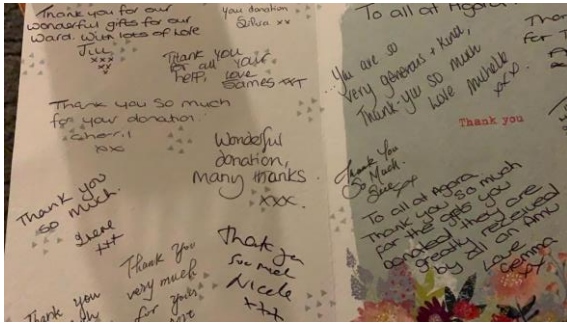 Thank you for our
wonderful gifts for our
Ward. With lots of love
Jill
xxx
xx
x
you donation
xx
Thank you
for all your
help.
Love
James xxx
Thank you so much
for your donation.
Sherril
xxx
Wonderful
donation,
many thanks
xxx.
Thank you
so much.
xxx
Thank You
very much
for your
Thank you
Thank you
so much
Nicole
xxx
To all at Agora
You are so
very generous & kind,
Thank-you so much
Love Michelle
xxx.
Thank you
Thank You
So Much.
Sue xxx
To all at Agora
Thank you so much
for the gifts you
donated they are
greatly received
by all on AMU
Love
Gemma
xx